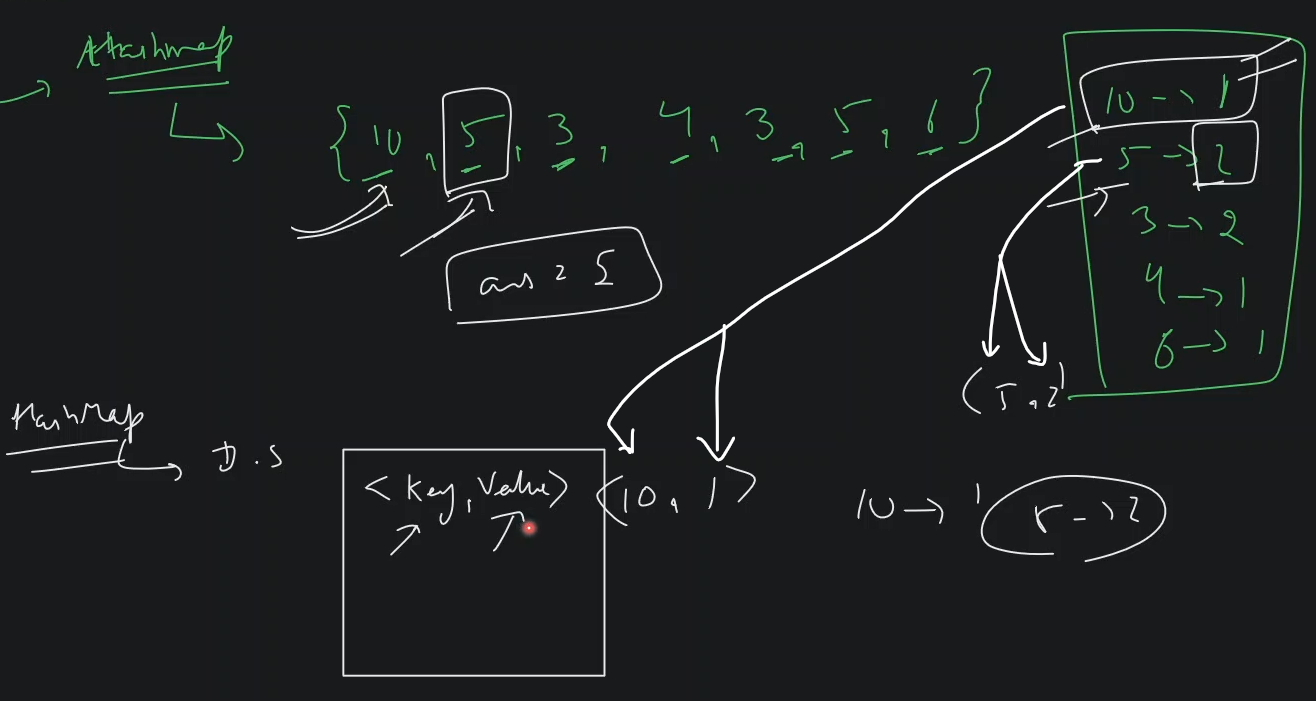 Hashmap
{10, 5, 3, 4, 3, 5, 6}
10 → 1
5 → 2
3 → 2
4 → 1
6 → 1
ans = 5
(5, 2)
HashMap
→ D.S
<Key, Value>
<10, 1>
10 → 1
5 → 2